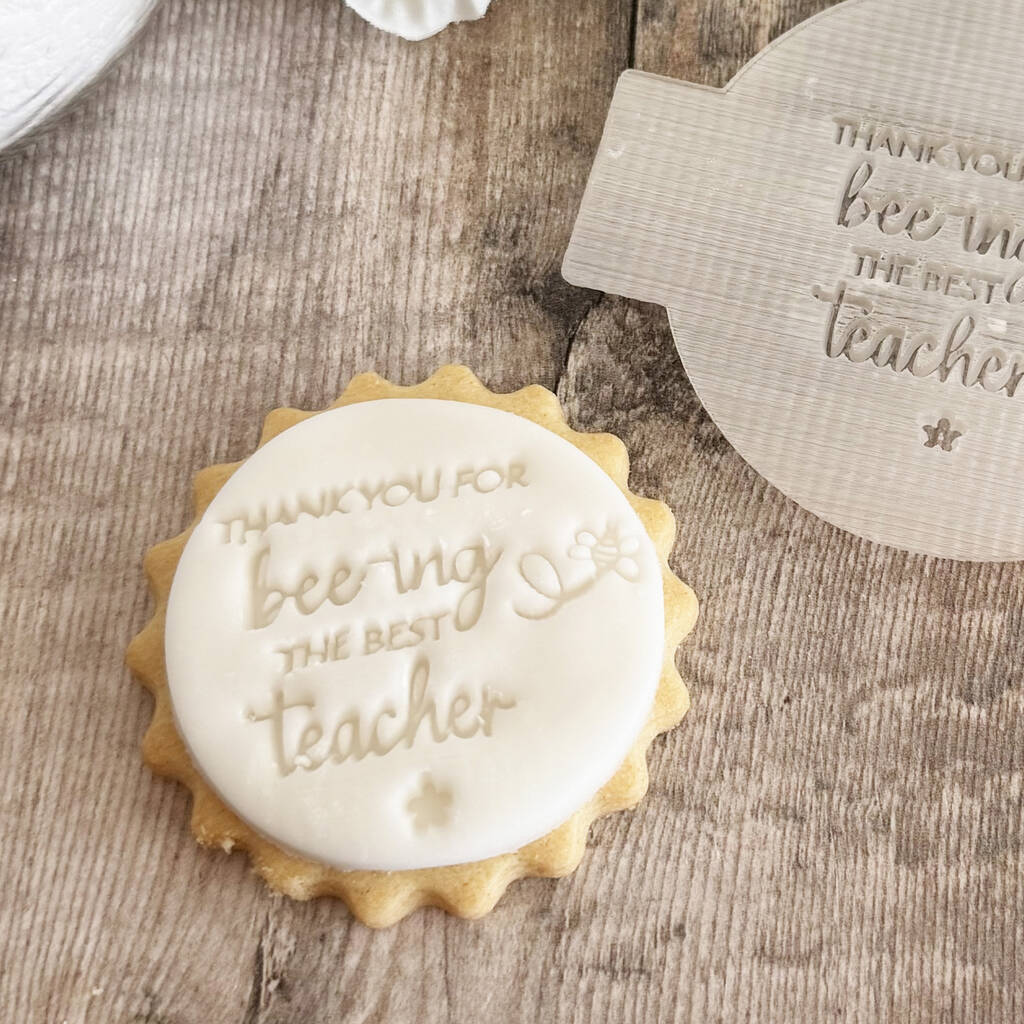 THANKYOU FOR
bee-ing
THE BEST
teacher
THANKYOU
bee-ing
THE BEST
teacher